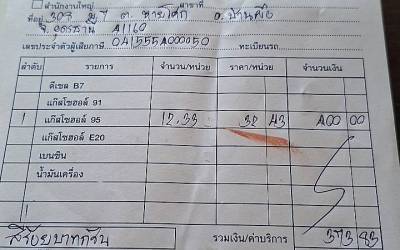 สำนักงานใหญ่ สาขาที่
ที่อยู่ 303 ม.7 ต. หายโศก อ. บ้านผือ
จ. อุดรธานี 41160
เลขประจำตัวผู้เสียภาษี 0415554000050 ทะเบียนรถ
ลำดับ รายการ จำนวน/หน่วย ราคา/หน่วย จำนวนเงิน
ดีเซล B7
แก๊สโซฮอล์ 91
1 แก๊สโซฮอล์ 95 12.33 32 43 400 00
แก๊สโซฮอล์ E20
เบนซิน
น้ำมันเครื่อง
สี่ร้อยบาทถ้วน รวมเงิน/ค่าบริการ 373 83